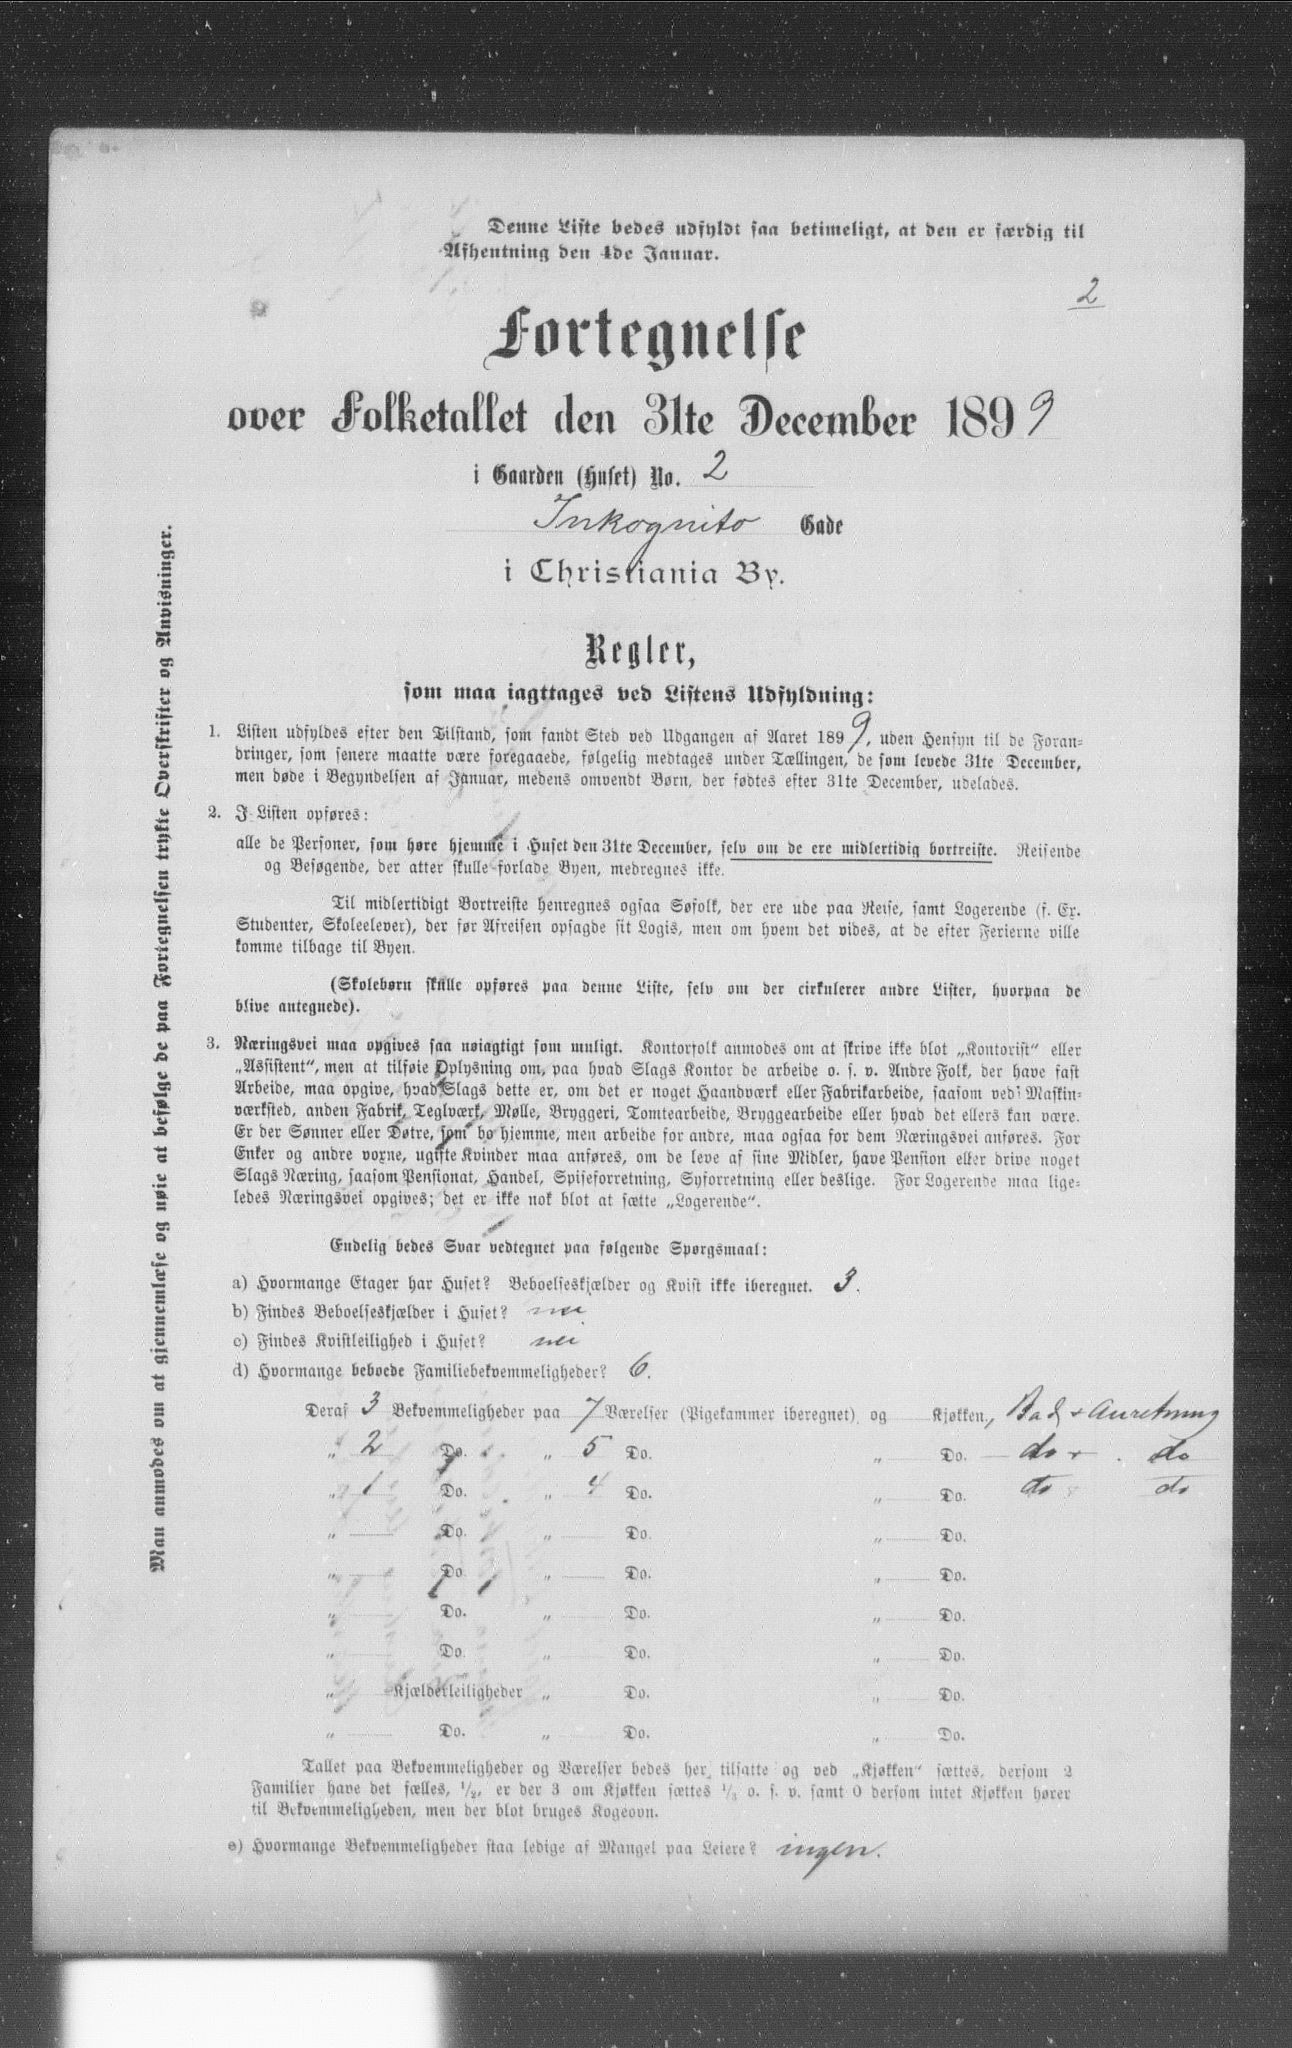 Denne Liste bedes udfyldt saa betimeligt, at den er færdig til
Afhentning den 4de Januar.
2
Fortegnelse
over Folketallet den 31te December 1899
i Gaarden (Huset) No. 2
Inkognito Gade
i Christiania By.
Regler,
som maa iagttages ved Listens Udfyldning:
1. Listen udfyldes efter den Tilstand, som fandt Sted ved Udgangen af Aaret 1899, uden Hensyn til de Foran-
dringer, som senere maatte være foregaaede, følgelig medtages under Tællingen, de som levede 31te December,
men døde i Begyndelsen af Januar, medens omvendt Børn, der fødtes efter 31te December, udelades.
2. I Listen opføres:
alle de Personer, som høre hjemme i Huset den 31te December, selv om de ere midlertidig bortreiste. Reisende
og Besøgende, der atter skulle forlade Byen, medregnes ikke.
Til midlertidigt Bortreiste henregnes ogsaa Søfolk, der ere ude paa Reise, samt Logerende (f. Ex.
Studenter, Skoleelever), der før Afreisen opsagde sit Logis, men om hvem det vides, at de efter Ferierne ville
komme tilbage til Byen.
(Skolebørn skulle opføres paa denne Liste, selv om der cirkulerer andre Lister, hvorpaa de
blive antegnede).
3. Næringsvei maa opgives saa nøiagtigt som muligt. Kontorfolk anmodes om at skrive ikke blot „Kontorist“ eller
„Assistent“, men at tilføie Oplysning om, paa hvad Slags Kontor de arbeide o. s. v. Andre Folk, der have fast
Arbeide, maa opgive, hvad Slags dette er, om det er noget Haandværk eller Fabrikarbeide, saasom ved Maskin-
værksted, anden Fabrik, Teglværk, Mølle, Bryggeri, Tomtearbeide, Bryggearbeide eller hvad det ellers kan være.
Er der Sønner eller Døtre, som bo hjemme, men arbeide for andre, maa ogsaa for dem Næringsvei anføres. For
Enker og andre voxne, ugifte Kvinder maa anføres, om de leve af sine Midler, have Pension eller drive noget
Slags Næring, saasom Pensionat, Handel, Spiseforretning, Syforretning eller deslige. For Logerende maa lige-
ledes Næringsvei opgives; det er ikke nok blot at sætte „Logerende“.
Endelig bedes Svar vedtegnet paa følgende Spørgsmaal:
a) Hvormange Etager har Huset? Beboelseskjælder og Kvist ikke iberegnet. 3.
b) Findes Beboelseskjælder i Huset? nei
c) Findes Kvistleilighed i Huset? nei
d) Hvormange beboede Familiebekvemmeligheder? 6.
Deraf 3 Bekvemmeligheder paa 7 Værelser (Pigekammer iberegnet) og Kjøkken, Bad + Anretning
„ 2 Do. „ 5 Do. „ Do. do + do
„ 1 Do. „ 4 Do. „ Do. do do
„ Do. „ Do. „ Do.
„ Do. „ Do. „ Do.
„ Do. „ Do. „ Do.
„ Do. „ Do. „ Do.
„ Kjælderleiligheder „ Do. „ Do.
„ Do. „ Do. „ Do.
Tallet paa Bekvemmeligheder og Værelser bedes her tilsatte og ved „Kjøkken“ sættes, dersom 2
Familier have det fælles, 1/2, er der 3 om Kjøkken sættes 1/3 o. s. v. samt 0 dersom intet Kjøkken hører
til Bekvemmeligheden, men der blot bruges Kogeovn.
e) Hvormange Bekvemmeligheder staa ledige af Mangel paa Leiere? ingen.
Man anmodes om at gjennemlæse og nøie at befølge de paa Fortegnelsen trykte Overskrifter og Anvisninger.